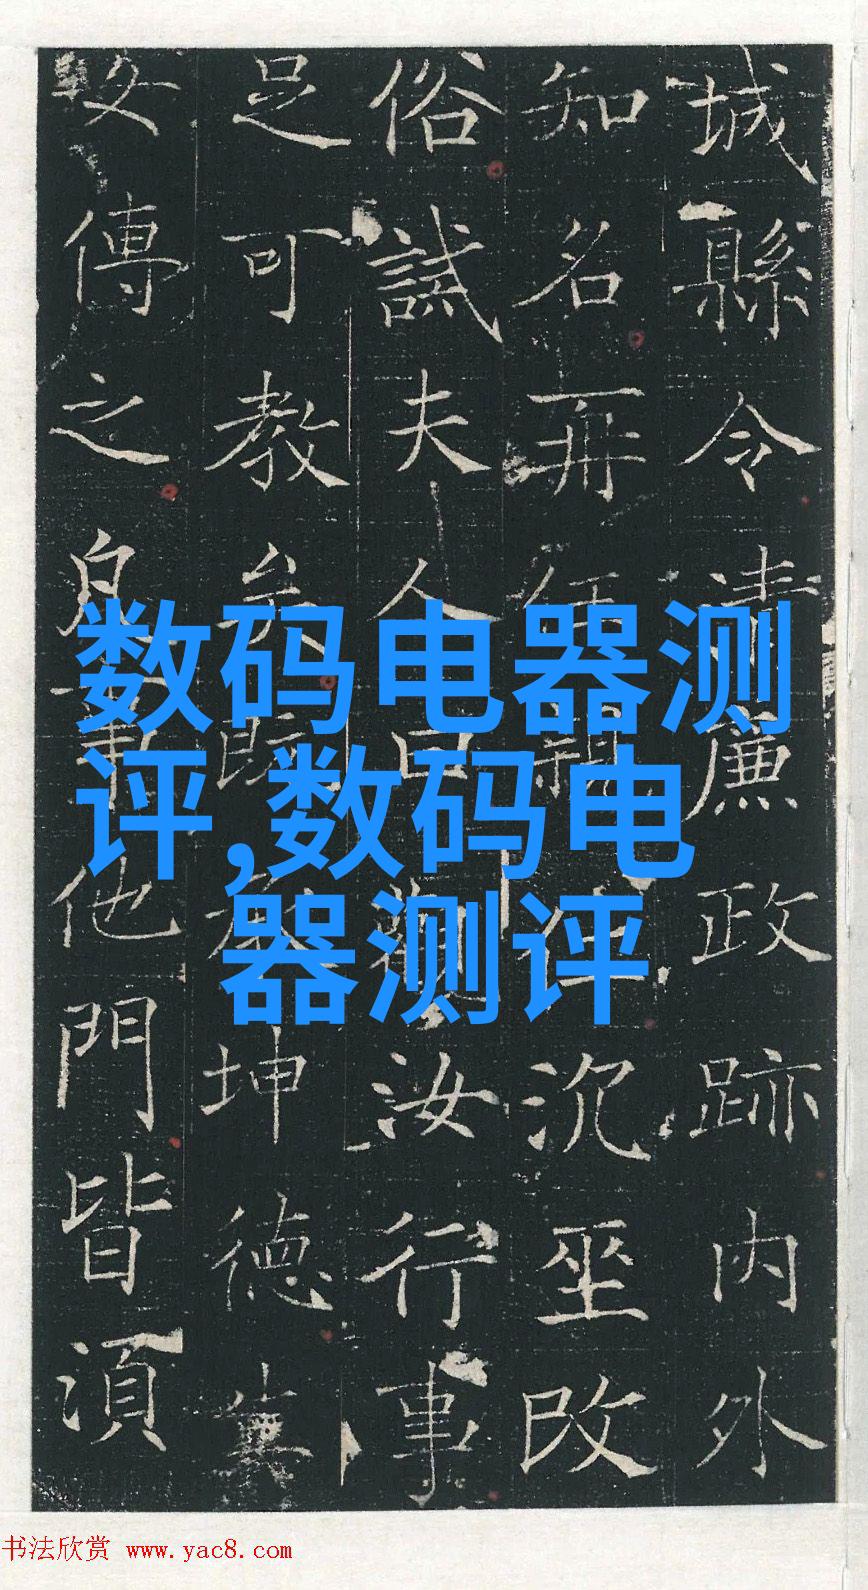 城縣令清廉政跡內外
知名再任親沉坐改
俗試夫人曰觀汝行事
足可教矣既坤德
女傳之事他門皆須
数码电器测
评,数码电
器测评
书法欣赏 www.yac8.com